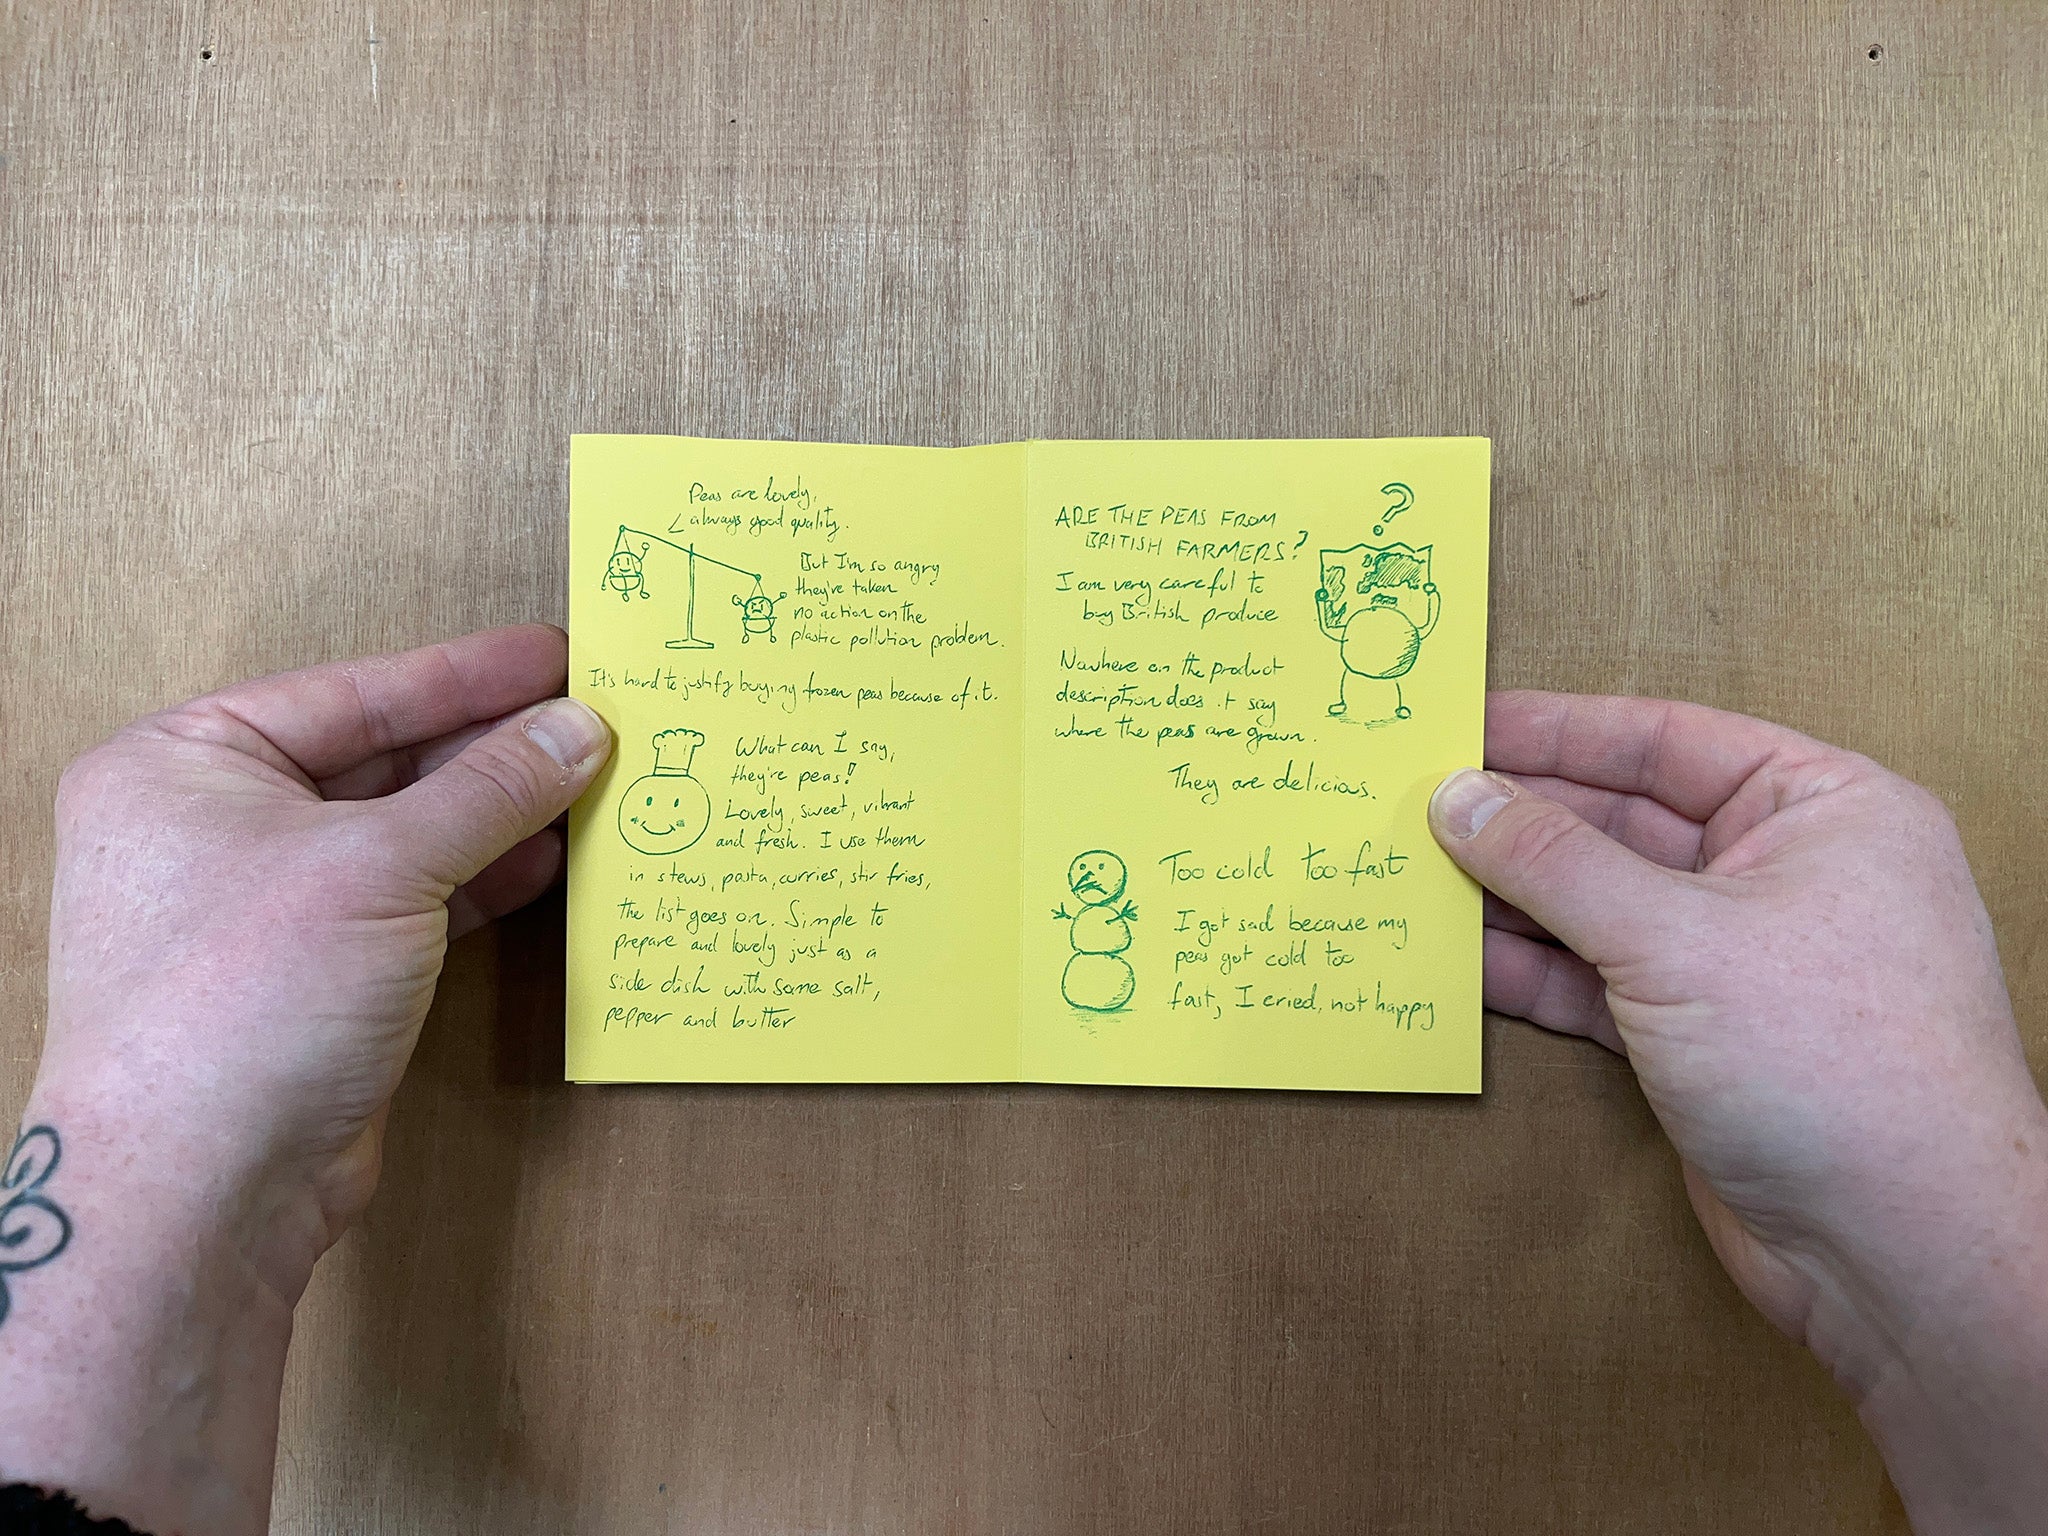 Peas are lovely,
always good quality.
But I'm so angry
they're taken
no action on the
plastic pollution problem.
It's hard to justify buying frozen peas because of it.
What can I say,
they're peas!
Lovely, sweet, vibrant
and fresh. I use them
in stews, pasta, curries, stir fries,
the list goes on. Simple to
prepare and lovely just as a
side dish with some salt,
pepper and butter
ARE THE PEAS FROM
BRITISH FARMERS?
I am very careful to
buy British produce
Nowhere on the product
description does it say
where the peas are grown.
They are delicious.
Too cold too fast
I got sad because my
peas got cold too
fast, I cried, not happy
?